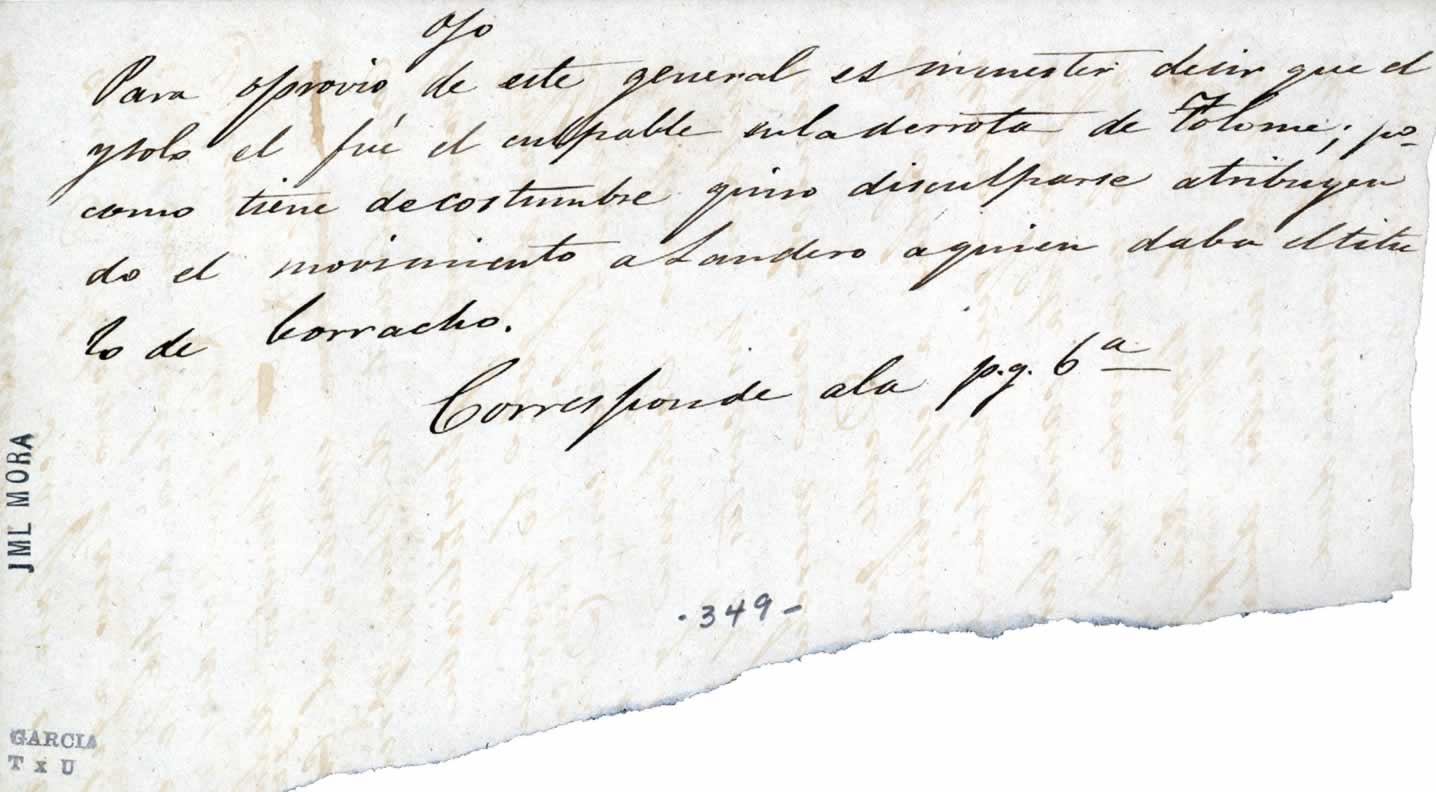 Ojo
Para oprovio de este general es menester decir que el
y solo el fué el culpable en la derrota de Tolome; po-
como tiene de costumbre quiso disculparse atribuyen
do el movimiento a Landero a quien daba el titu
lo de borracho.
Corresponde ala p.g. 6ª
JML MORA
·349-
GARCIA
T x U